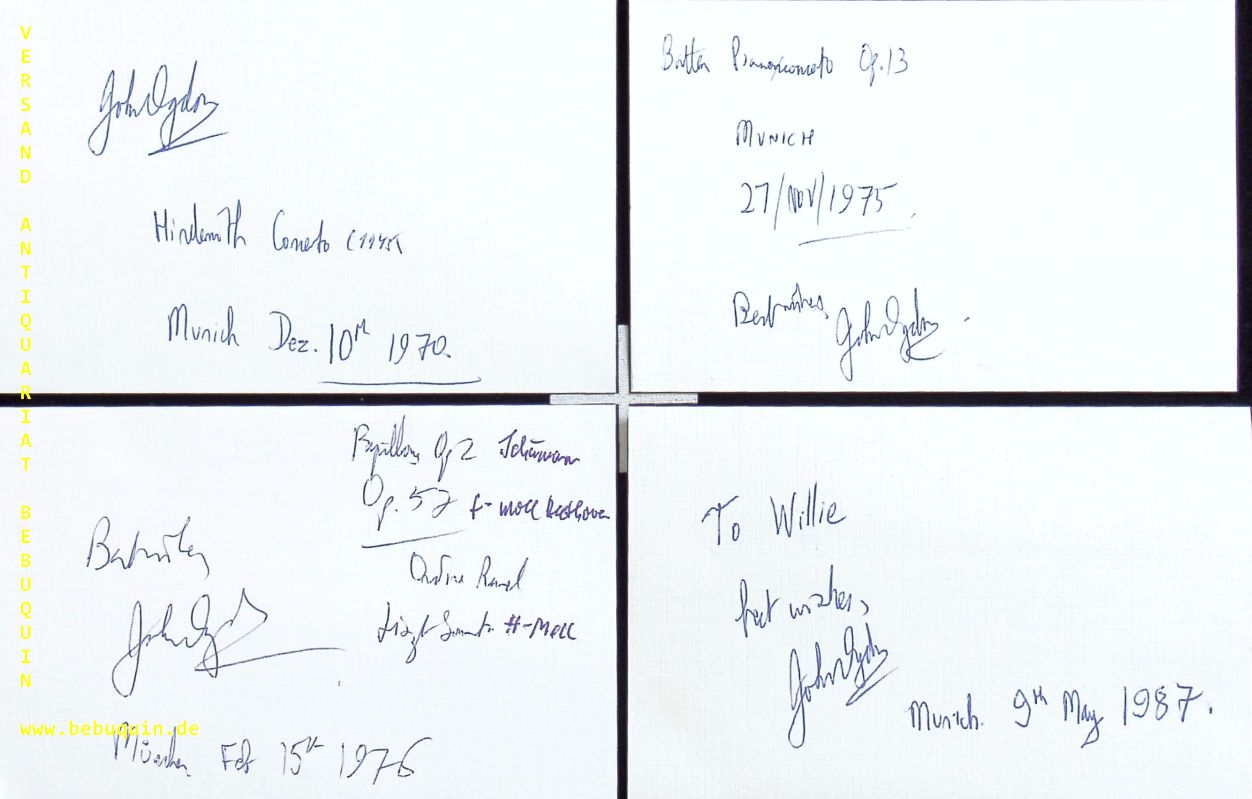 VERSAND ANTIQUARIAT BEBUQUIN
www.bebuquin.de
John Ogdon
Hindemith Concerto (1945)
Munich Dez. 10th 1970.
Britten Pianoconcerto Op.13
MUNICH
27/NOV/1975.
Best wishes,
John Ogdon
Papillons Op 2 Schumann
Op. 57 f-moll Beethoven
Ondine Ravel
Liszt Sonata H-Moll
Best wishes
John Ogdon
München Feb 15th 1976
To Willie
best wishes,
John Ogdon
Munich. 9th May 1987.